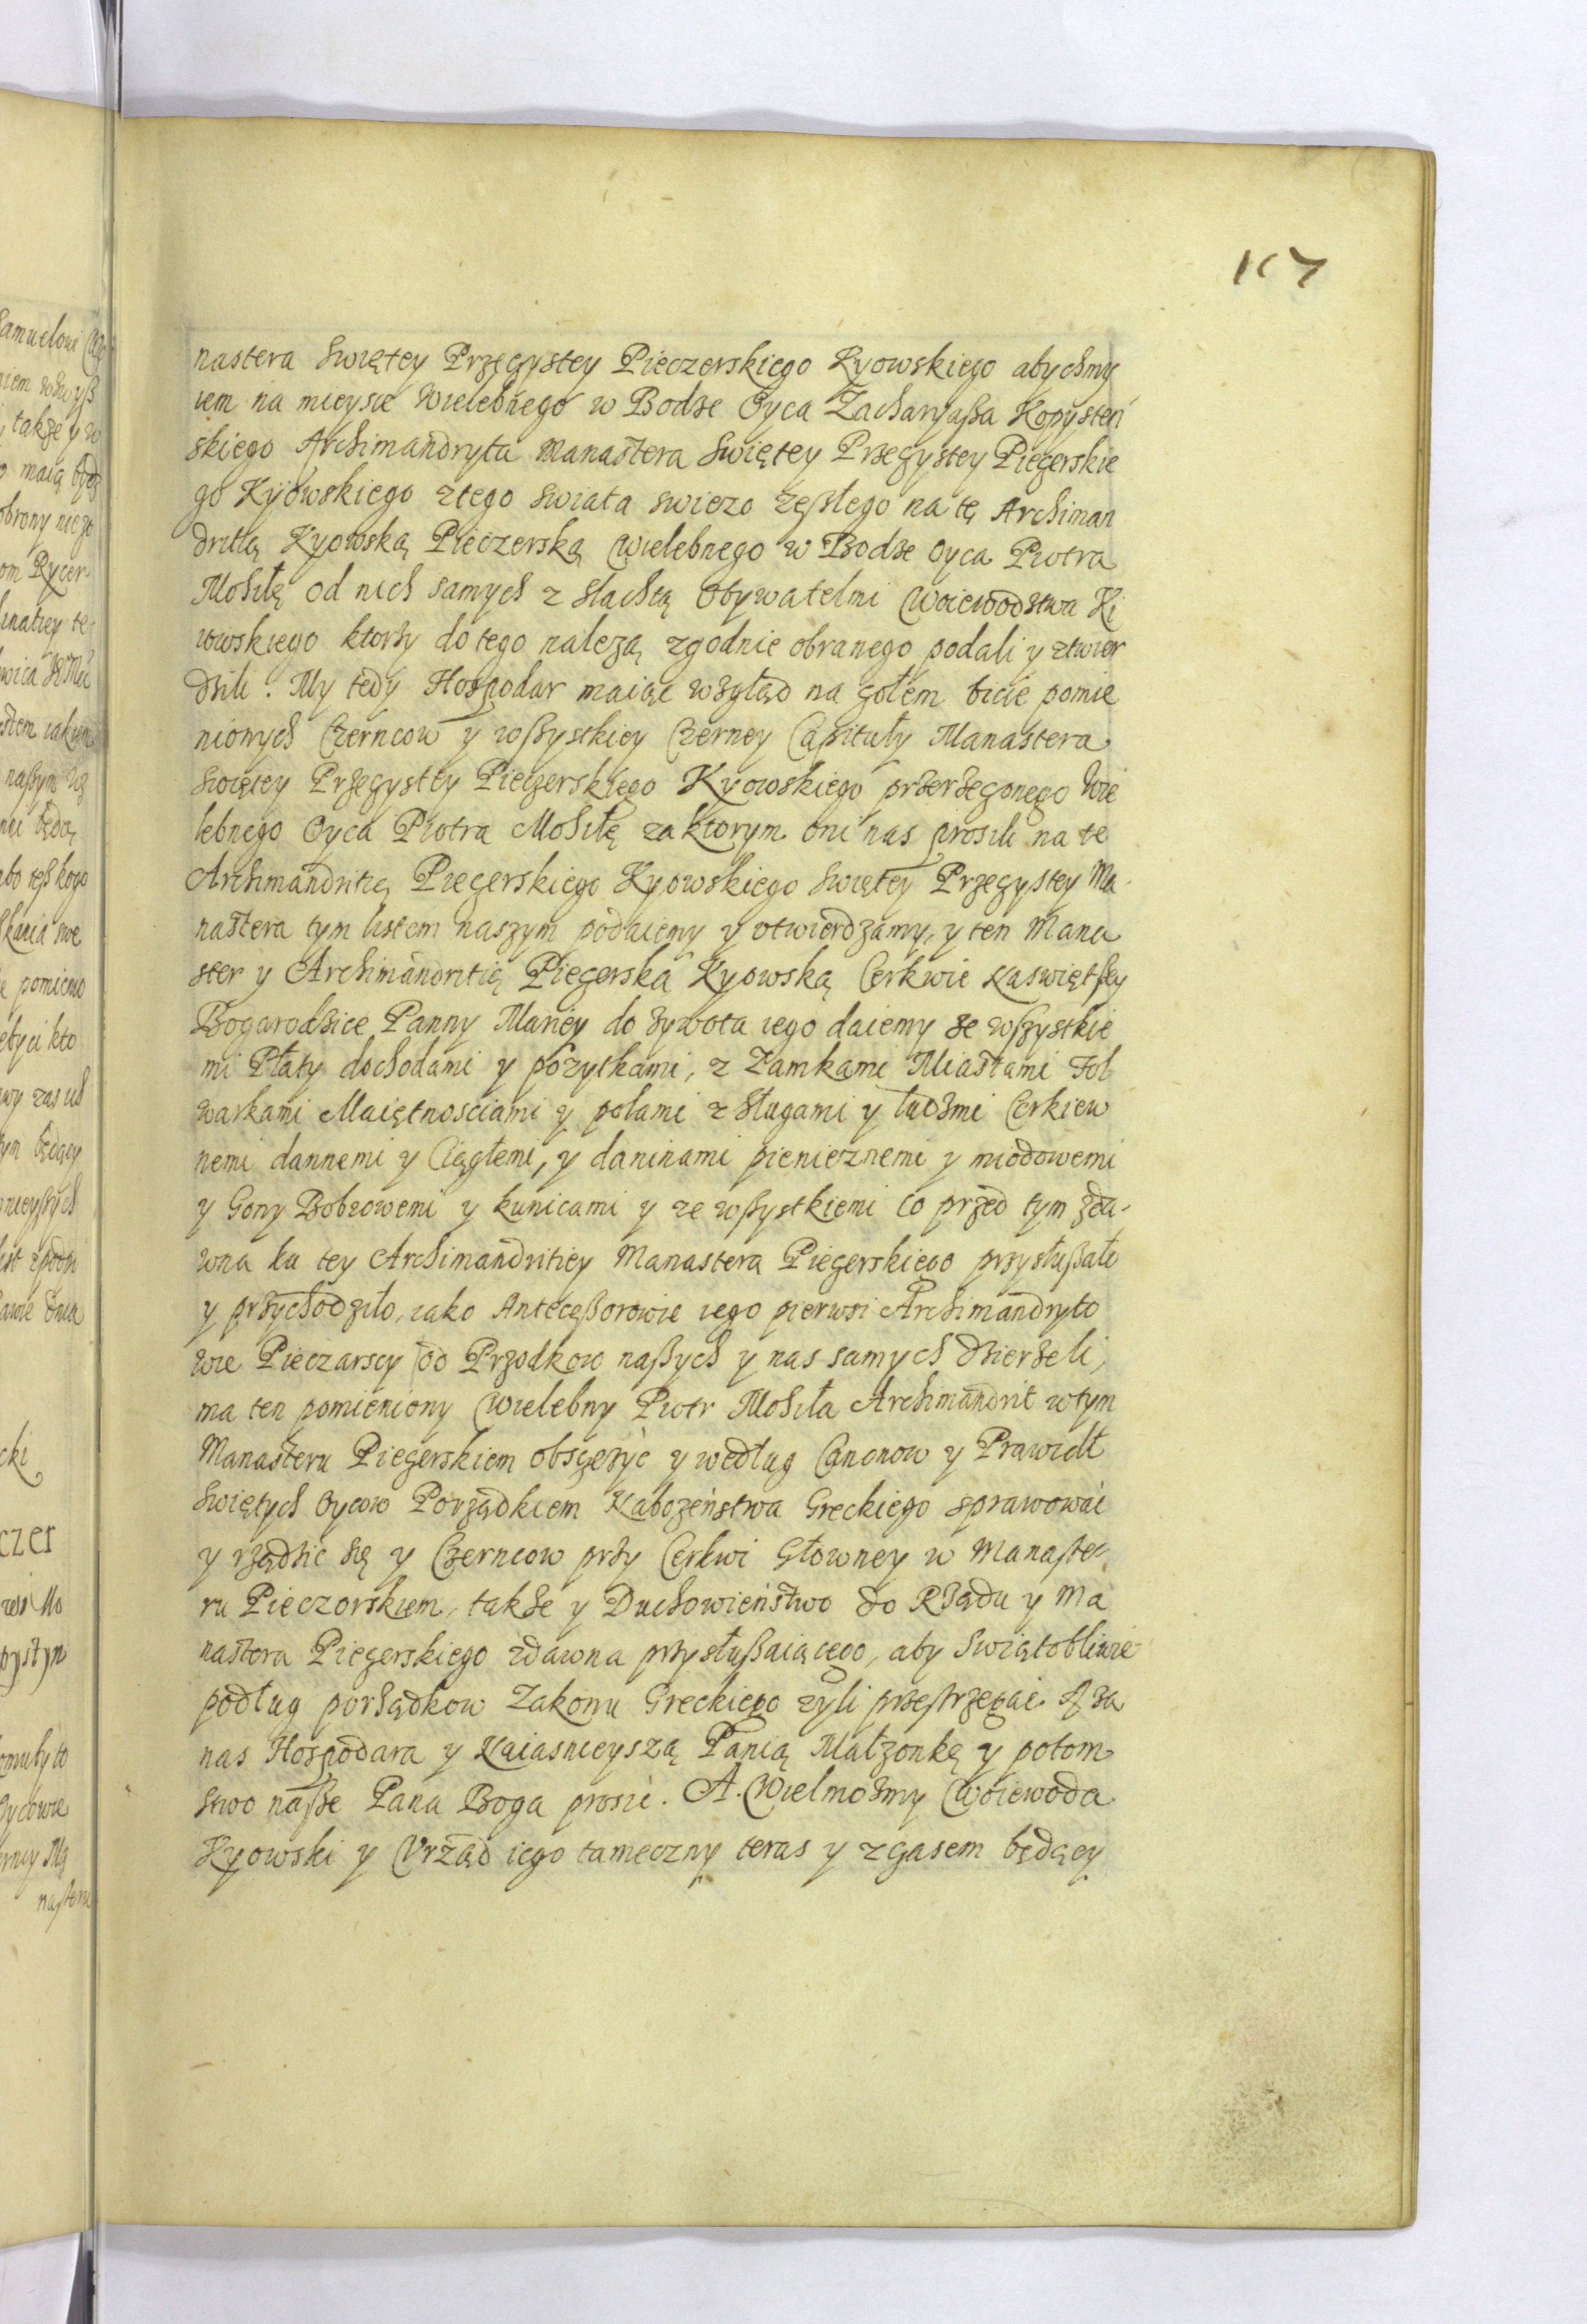 107
nastera Swiętey Przeczystey Pieczerskiego Kyowskiego abychmy
iem na mieysce Wielebnego w Bodze Oyca Zacharyaßa Kopysteń
skiego Archimandryta Manastera Swiętey Przeczystey Pieczerskie
go Kyiowskiego ztego swiata swiezo zeßłego na tę Archiman
dritią Kyowską Pieczerską Wielebnego w Bodze Oyca Piotra
Mohiłę od nich samych z Slachtą Obywatelmi Woiewodztwa Ki
iowskiego ktorzy do tego nalezą zgodnie obranego podali y ztwier
dzili. My tedy Hospodar maiąc wzgląd na gołem bicie pomie
nionych Czerncow y wßystkiey Czerney Capituły Manastera
Swiętey Przeczystey Pieczerskiego Kyowskiego przerzeczonego Wie
lebnego Oyca Piotra Mohiłę zaktorym oni nas prosili na te
Archimandritią Pieczerskiego Kyowskiego Swiętey Przeczystey Ma-
nastera tym listem naszym podaiemy y utwierdzamy, y ten Mana
ster y Archimandritią Pieczerska Kyowską Cerkwie Naswiętßey
Bogarodzice Panny Mariey do zywota iego daiemy ze wszystkie
mi Płaty dochodami y pozytkami, z Zamkami Miastami Fol
warkami Maiętnosciami y polami z sługami y ludzmi Cerkiew
nemi dannemi y Ciągłemi, y daninami pienieznemi y miodowemi
y Gony Bobrowemi y kunicami y ze wßystkiemi co przed tym zda-
wna ku tey Archimandritiey Manastera Pieczerskiego przysłußało
y przychodziło, iako Anteceßorowie iego pierwsi Archimandryto
wie Pieczarscy od Przodkow naßych y nas samych dzierzeli,
ma ten pomieniony Wielebny Piotr Mohiła Archimandrit wtym
Manasteru Pieczerskiem obsczezyć y według Canonow y Prawidł
Swiętych Oycow Porządkiem Nabozeństwa Greckiego sprawować
y rządzić się y Czerncow przy Cerkwi Głowney w Manaste-
ru Pieczorskiem, takze y Duchowieństwo do Rządu y Ma
nastera Pieczerskiego zdawna przysłußaiącego, aby Swiątobliwie
podług porządkow Zakonu Greckiego zyli przestrzegać. A za
nas Hospodara y Naiasnieyszą Panią Małzonkę y potom
stwo naßze Pana Boga prosić. A. Wielmozny Woiewoda
Kyowski y Vrząd iego tameczny teras y zczasem będący